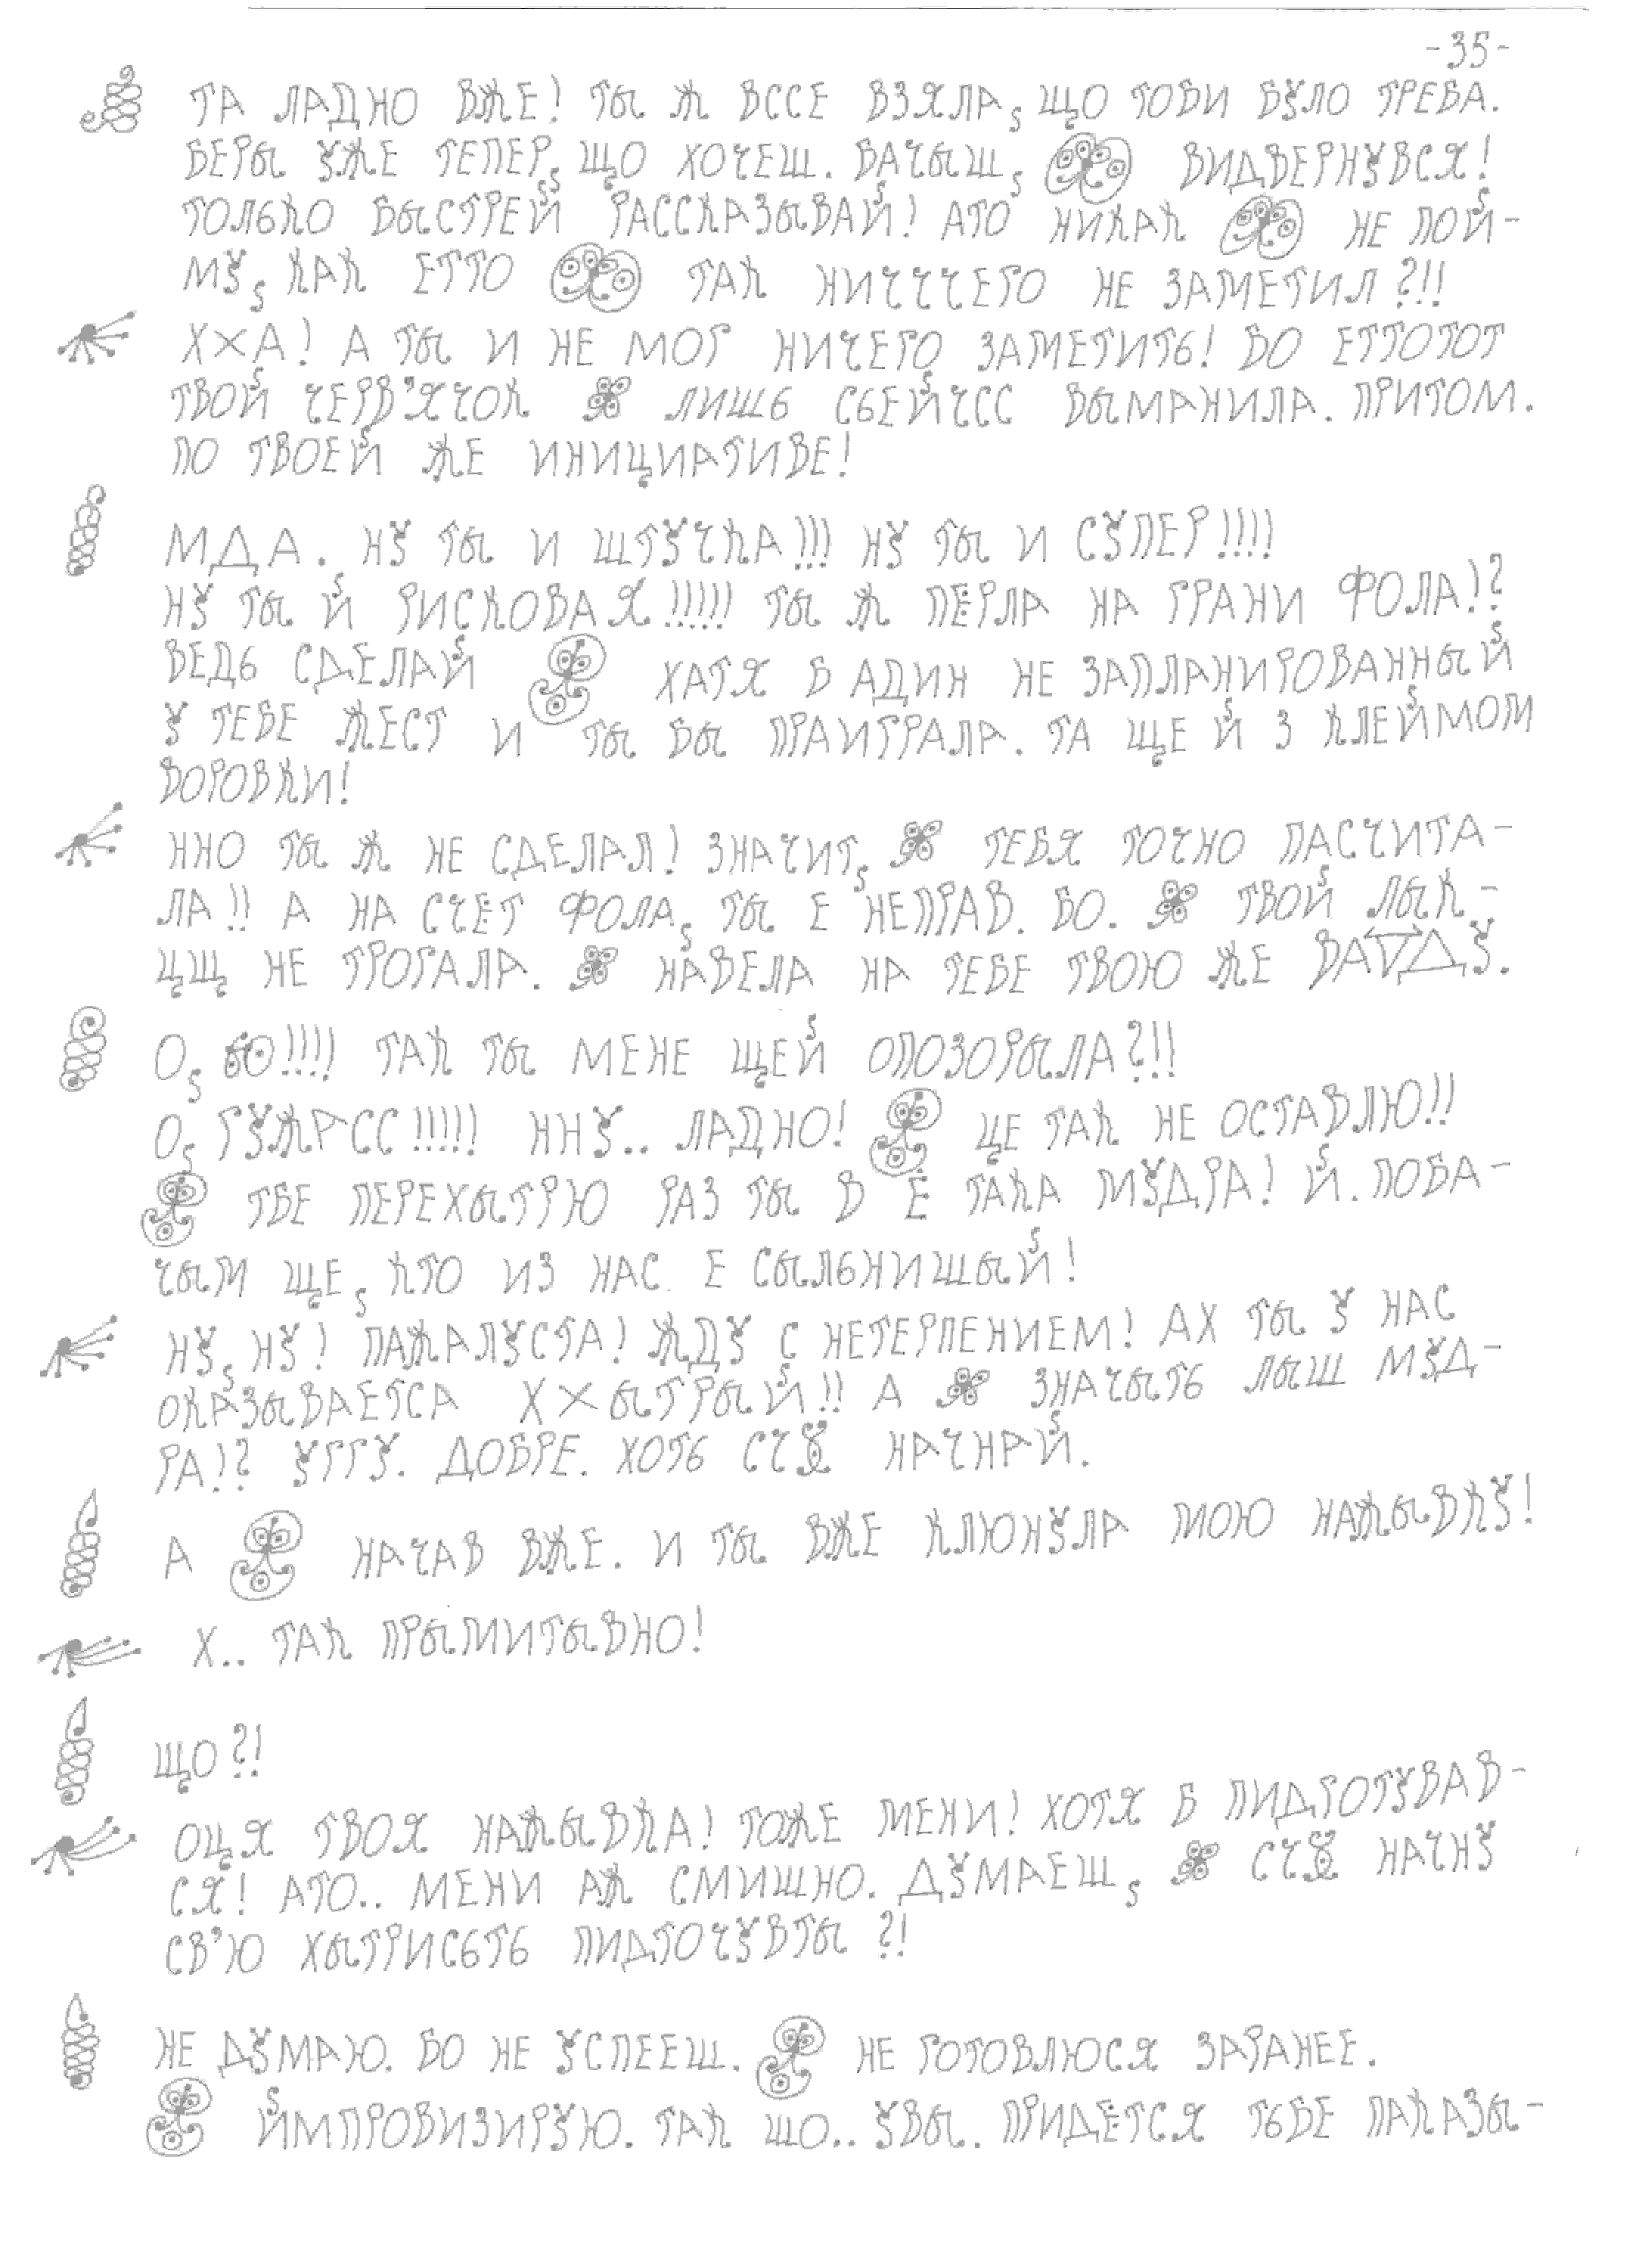 -35-
ТА ЛАДНО ВЖЕ! ТЫ Ж ВССЕ ВЗЯЛА, ЩО ТОБИ БУЛО ТРЕБА.
БЕРЫ УЖЕ ТЕПЕР, ЩО ХОЧЕШ. БАЧЫШ, ВИДВЕРНУВСЯ!
ТОЛЬКО БЫСТРЕЙ РАССКАЗЫВАЙ! АТО НИКАК НЕ ПОЙ-
МУ, КАК ЕТТО ТАК НИЧЧЧЕГО НЕ ЗАМЕТИЛ?!!
ХХА! А ТЫ И НЕ МОГ НИЧЕГО ЗАМЕТИТЬ! БО ЕТТОТОТ
ТВОЙ ЧЕРВ'ЯЧОК ЛИШЬ СЬЕЙЧСС ВЫМАНИЛА. ПРИТОМ.
ПО ТВОЕЙ ЖЕ ИНИЦИАТИВЕ!
МДА. НУ ТЫ И ШТУЧКА!!! НУ ТЫ И СУПЕР!!!!
НУ ТЫ Й РИСКОВАЯ!!!!! ТЫ Ж ПЕРЛА НА ГРАНИ ФОЛА!?
ВЕДЬ СДЕЛАЙ ХАТЯ Б АДИН НЕ ЗАПЛАНИРОВАННЫЙ
У ТЕБЕ ЖЕСТ И ТЫ БЫ ПРАИГРАЛА. ТА ЩЕ Й З КЛЕЙМОМ
ВОРОВКИ!
ННО ТЫ Ж НЕ СДЕЛАЛ! ЗНАЧИТ, ТЕБЯ ТОЧНО ПАСЧИТА-
ЛА!! А НА СЧЁТ ФОЛА, ТЫ Е НЕПРАВ. БО. ТВОЙ ЛЫК-
ЦЩ НЕ ТРОГАЛА. НАВЕЛА НА ТЕБЕ ТВОЮ ЖЕ
О, БО!!!! ТАК ТЫ МЕНЕ ЩЕЙ ОПОЗОРЫЛА?!!
О, ГУЖРСС!!!!! ННУ.. ЛАДНО! ЦЕ ТАК НЕ ОСТАВЛЮ!!
ТБЕ ПЕРЕХЫТРЮ РАЗ ТЫ В Ё ТАКА МУДРА! Й. ПОБА-
ЧЫМ ЩЕ, КТО ИЗ НАС Е СЫЛЬНИШЫЙ!
НУ, НУ! ПАЖАЛУСТА! ЖДУ С НЕТЕРПЕНИЕМ! АХ ТЫ У НАС
ОКАЗЫВАЕТСА ХХЫТРЫЙ!! А ЗНАЧЫТЬ ЛЫШ МУД-
РА!? УГГУ. ДОБРЕ. ХОТЬ НАЧНАЙ.
А НАЧАВ ВЖЕ. И ТЫ ВЖЕ КЛЮНУЛА МОЮ НАЖЫВКУ!
Х.. ТАК ПРЫМИТЫВНО!
ЩО?!
ОЦЯ ТВОЯ НАЖЫВКА! ТОЖЕ МЕНИ! ХОТЯ Б ПИДГОТУВАВ-
СЯ! АТО.. МЕНИ АЖ СМИШНО. ДУМАЕШ, НАЧНУ
СВ'Ю ХЫТРИСЬТЬ ПИДТОЧУВТЫ?!
НЕ ДУМАЮ. БО НЕ УСПЕЕШ. НЕ ГОТОВЛЮСЯ ЗАРАНЕЕ.
ЙМПРОВИЗИРУЮ. ТАК ШО.. УВЫ. ПРИДЁТСЯ ТЬБЕ ПАКАЗЫ-